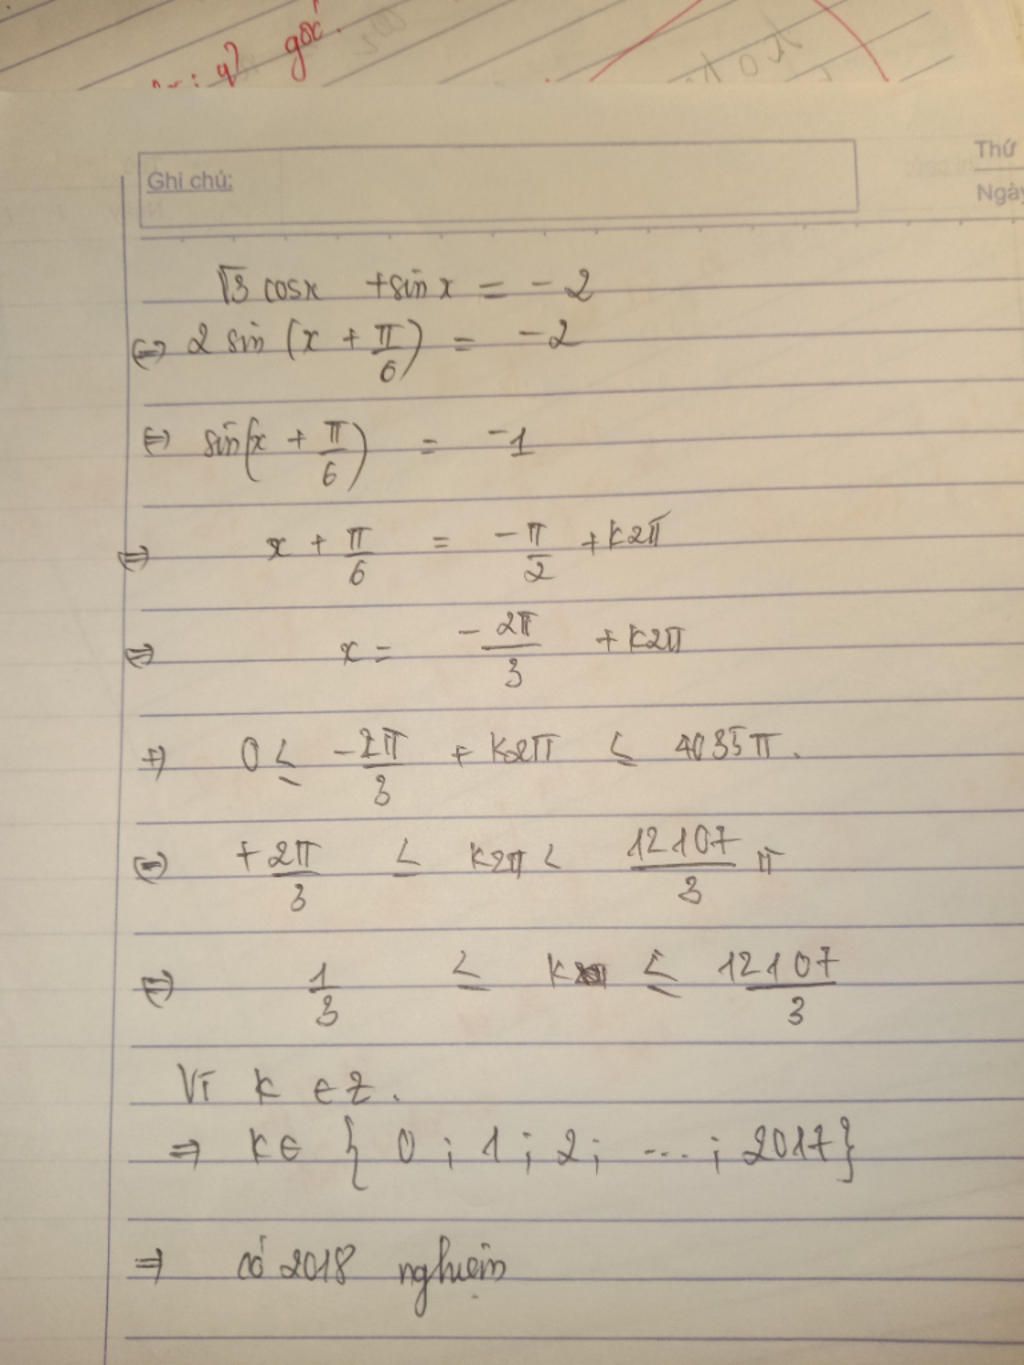 góc.
Ghi chú:
Thứ
Ngày
√3 cosx + sin x = -2
⇔ 2 sin (x + π/6) = -2
⇔ sin(x + π/6) = -1
⇔ x + π/6 = -π/2 + k2π
⇔ x = -2π/3 + k2π
⇒ 0 ≤ -2π/3 + k2π ≤ 4035π.
⇔ +2π/3 ≤ k2π < 12107/3 π
⇔ 1/3 ≤ k ≤ 12107/3
Vì k ∈ Z.
⇒ k ∈ { 0 ; 1 ; 2 ; ... ; 2017}
⇒ có 2018 nghiệm